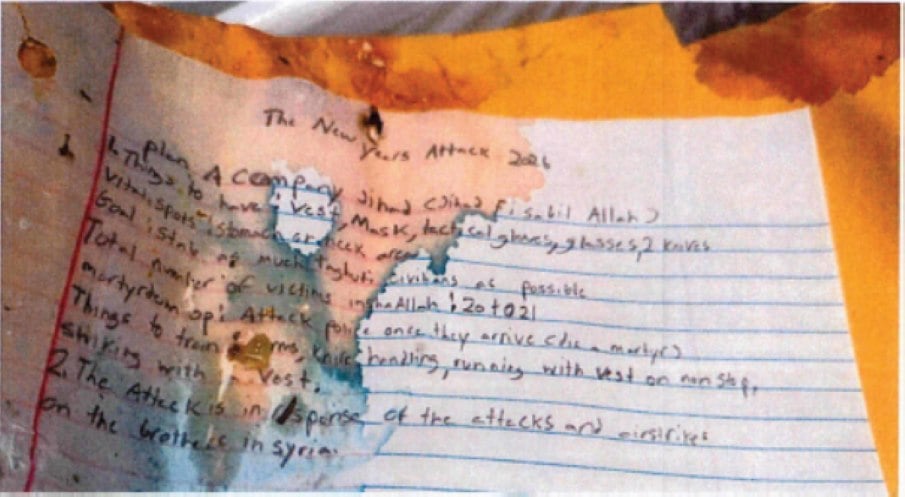 The New Years Attack 2026
plan A company Jihad (Jihad fi sabil Allah)
1. Things to have: vest, Mask, tactical gloves, glasses, 2 knives
vital spots: stomach or neck area
Goal: stab as much taghuti civilians as possible
Total number of victims inshaAllah: 20 to 21
martyrdom op: Attack police once they arrive (die a martyr)
Things to train: arms, knife handling, running with vest on non stop,
striking with a vest.
2. The Attack is in response of the attacks and airstrikes
on the brothers in syria.